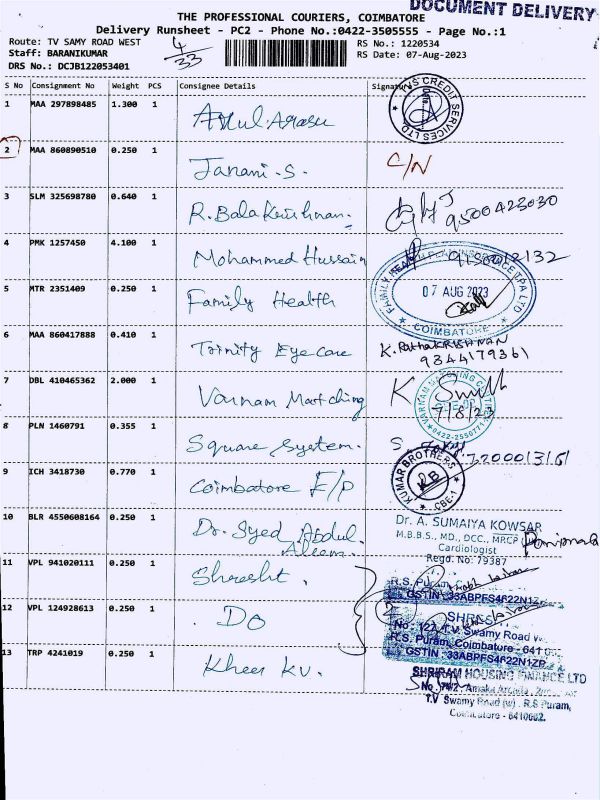 DOCUMENT DELIVERY
THE PROFESSIONAL COURIERS, COIMBATORE
Delivery Runsheet - PC2 - Phone No.:0422-3505555 - Page No.:1
Route: TV SAMY ROAD WEST
4/33
RS No.: 1220534
Staff: BARANIKUMAR
RS Date: 07-Aug-2023
DRS No.: DCJB122053401
S No Consignment No Weight PCS Consignee Details Signature
1 MAA 297898485 1.300 1 Amul.Arasu
VS CREDIT SERVICES LTD
2 MAA 860890510 0.250 1 Janani-S. C/N
3 SLM 325698780 0.640 1 R.Bala Krishnan. 9500423030
4 PMK 1257450 4.100 1 Mohammed Hussain
5 MTR 2351409 0.250 1 Family Health
FAMILY HEALTH PLAN INSURANCE TPA LTD
07 AUG 2023
COIMBATORE
6 MAA 860417888 0.410 1 Trinity Eye care K. RathaKRISHNAN
9344179361
7 DBL 410465362 2.000 1 Varnam Matching K
7/8/23
VARNAM MATCHING
8 PLN 1460791 0.355 1 Square System. S.
KUMAR BROTHERS
KB
CBE-1
9 ICH 3418730 0.770 1 Coimbatore F/P
10 BLR 4550608164 0.250 1 Dr. Syed Abdul
Aleem.
Dr. A. SUMAIYA KOWSAR
M.B.B.S., MD., DCC., MRCP
Cardiologist
Regd. No: 79387
11 VPL 941020111 0.250 1 Shresht.
R.S. Puram,
GSTIN :33ABPFS4622N1Z
12 VPL 124928613 0.250 1 . Do 2
SHRES
No : 122, T.V. Swamy Road
R.S. Puram, Coimbatore - 641
GSTIN :33ABPFS4622N1ZP
13 TRP 4241019 0.250 1 Kheer KV.
SHRIRAM HOUSING FINANCE LTD
T.V Swamy Road (w) . R.S Puram,
Coimbatore - 6410002.